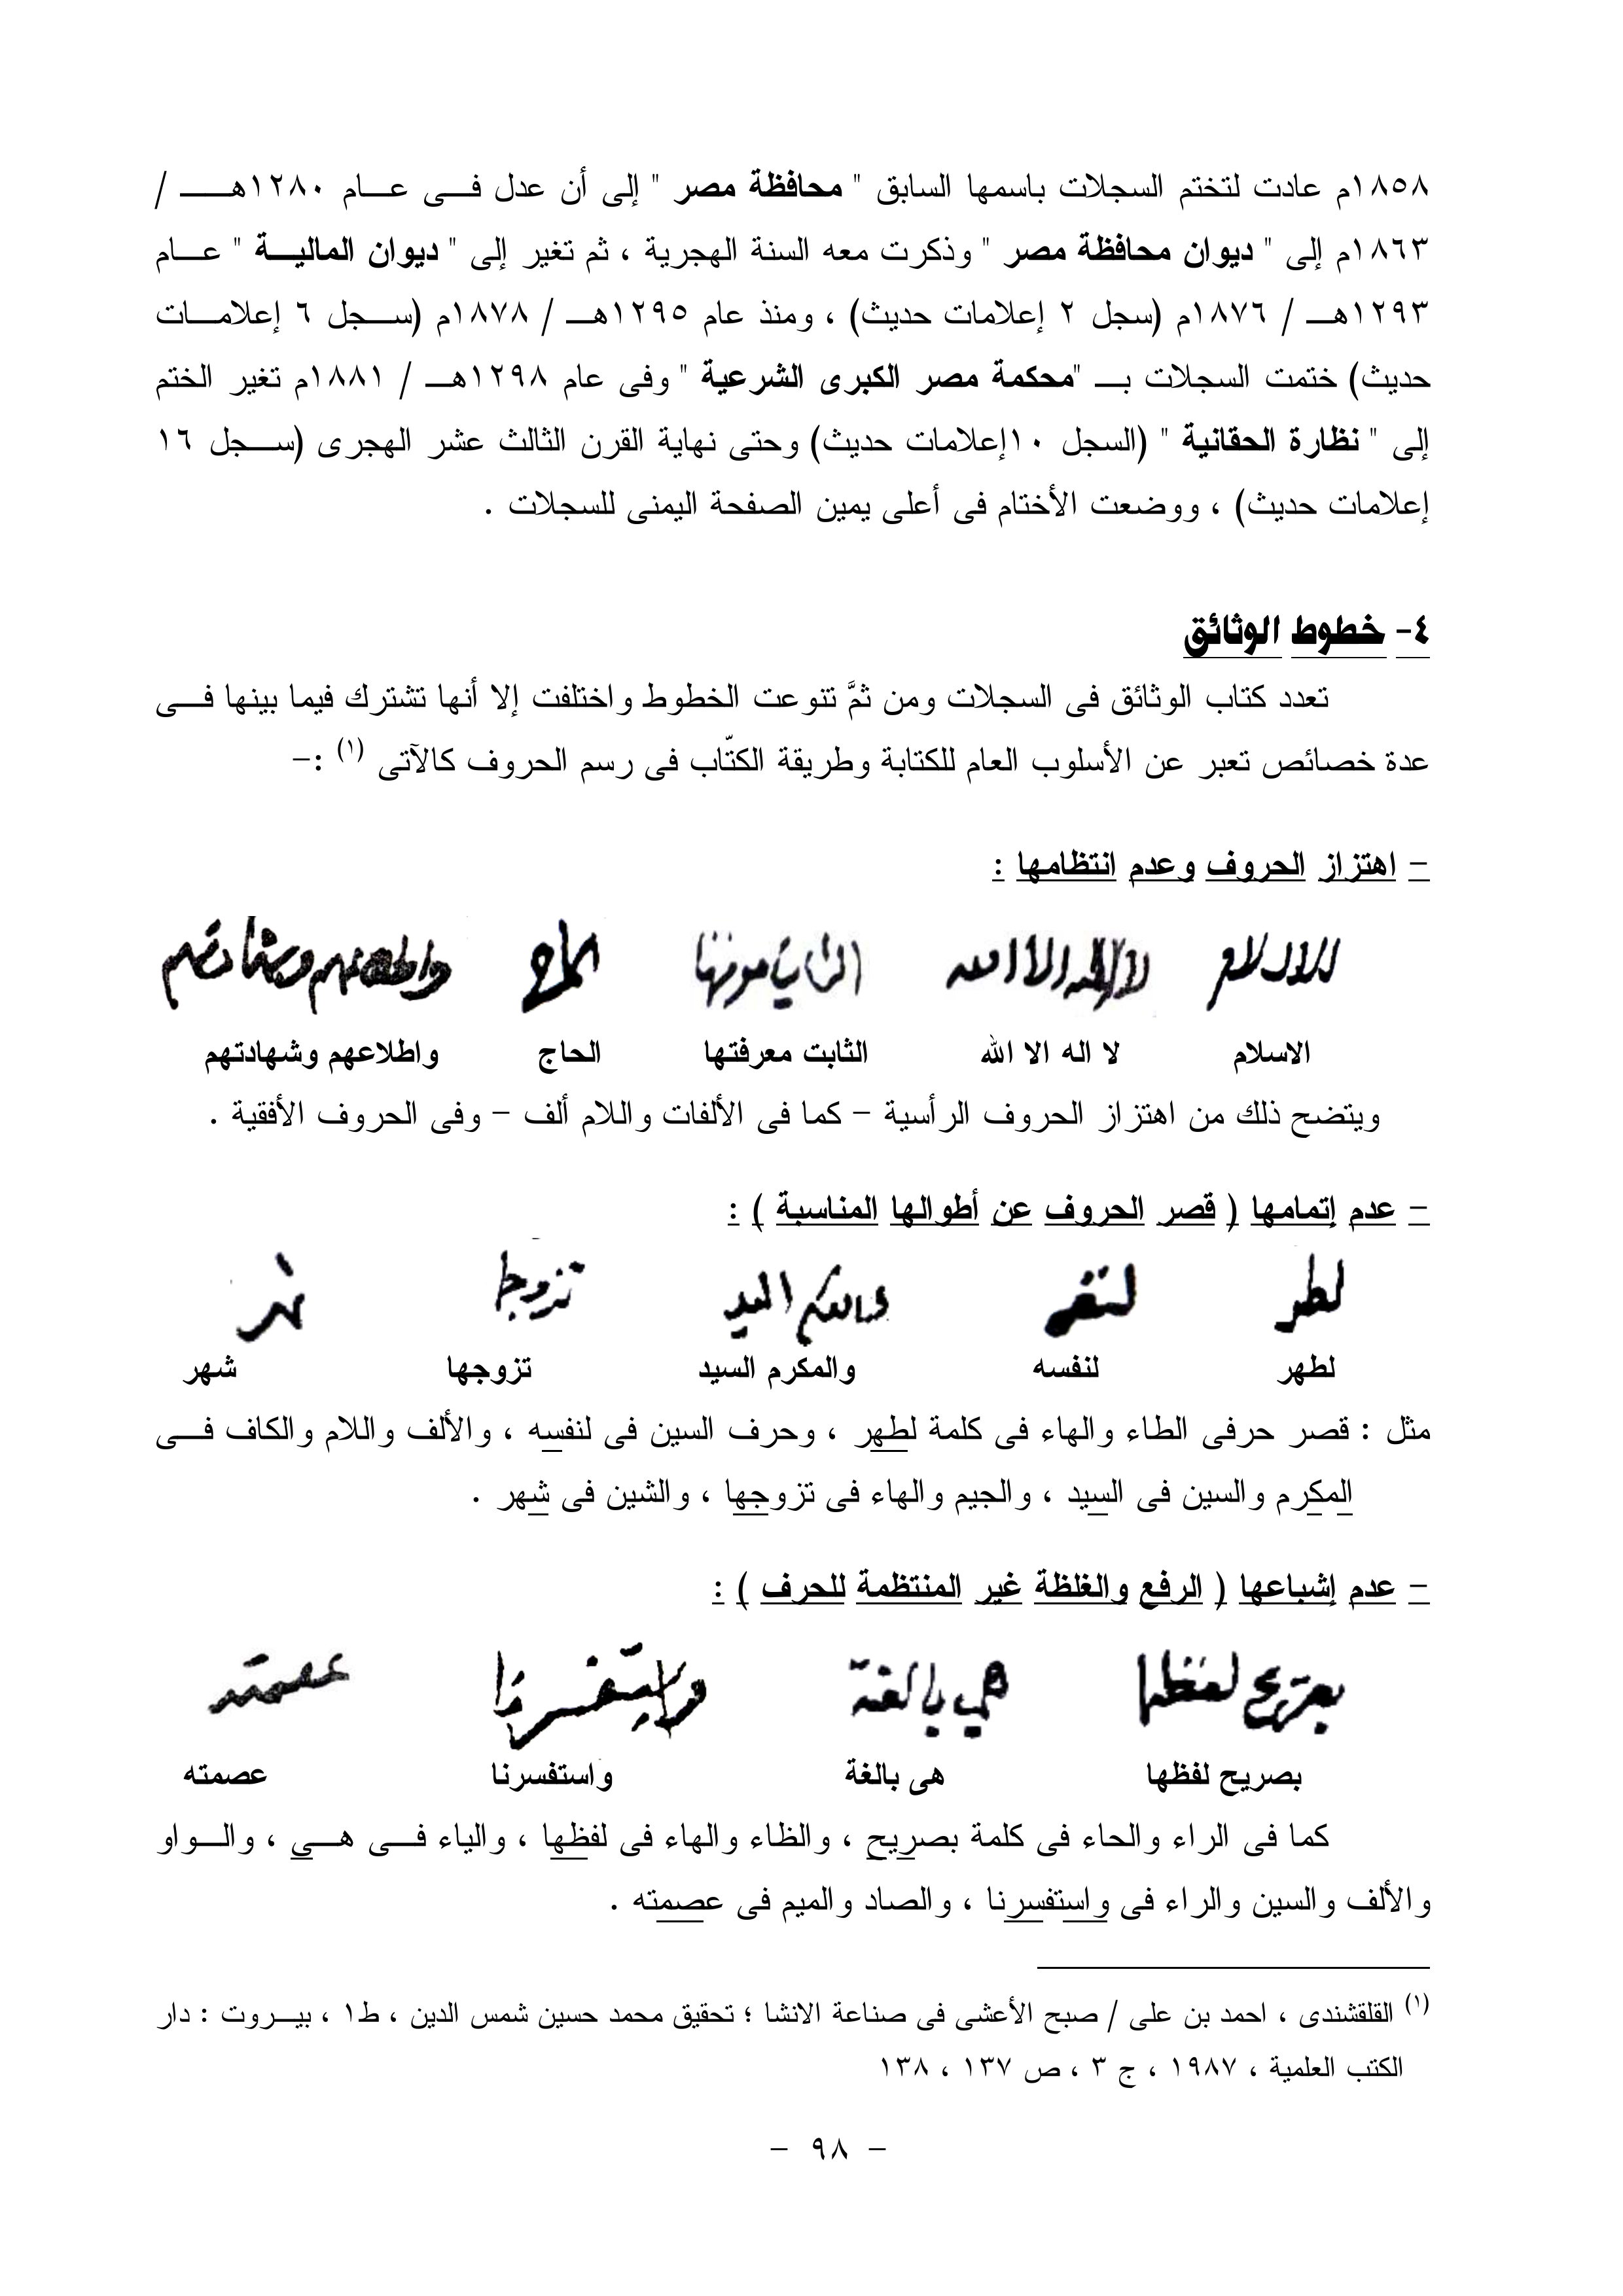 ١٨٥٨م عادت لتختم السجلات باسمها السابق " محافظة مصر " إلى أن عدل فى عام ١٢٨٠هـ /
١٨٦٣م إلى " ديوان محافظة مصر " وذكرت معه السنة الهجرية ، ثم تغير إلى " ديوان المالية " عام
١٢٩٣هـ / ١٨٧٦م (سجل ٢ إعلامات حديث) ، ومنذ عام ١٢٩٥هـ / ١٨٧٨م (سجل ٦ إعلامات
حديث) ختمت السجلات بـ "محكمة مصر الكبرى الشرعية " وفى عام ١٢٩٨هـ / ١٨٨١م تغير الختم
إلى " نظارة الحقانية " (السجل ١٠إعلامات حديث) وحتى نهاية القرن الثالث عشر الهجرى (سجل ١٦
إعلامات حديث) ، ووضعت الأختام فى أعلى يمين الصفحة اليمنى للسجلات .
٤- خطوط الوثائق
تعدد كتاب الوثائق فى السجلات ومن ثمَّ تنوعت الخطوط واختلفت إلا أنها تشترك فيما بينها فى
عدة خصائص تعبر عن الأسلوب العام للكتابة وطريقة الكتّاب فى رسم الحروف كالآتى (١) :-
- اهتزاز الحروف وعدم انتظامها :
الاسلام لا اله الا الله الثابت معرفتها الحاج واطلاعهم وشهادتهم
الاسلام لا اله الا الله الثابت معرفتها الحاج واطلاعهم وشهادتهم
ويتضح ذلك من اهتزاز الحروف الرأسية - كما فى الألفات واللام ألف - وفى الحروف الأفقية .
- عدم إتمامها ( قصر الحروف عن أطوالها المناسبة ) :
لطهر لنفسه والمكرم السيد تزوجها شهر
لطهر لنفسه والمكرم السيد تزوجها شهر
مثل : قصر حرفى الطاء والهاء فى كلمة لطهر ، وحرف السين فى لنفسه ، والألف واللام والكاف فى
المكرم والسين فى السيد ، والجيم والهاء فى تزوجها ، والشين فى شهر .
- عدم إشباعها ( الرفع والغلظة غير المنتظمة للحرف ) :
بصريح لفظها هي بالغة واستفسرنا عصمته
بصريح لفظها هى بالغة واستفسرنا عصمته
كما فى الراء والحاء فى كلمة بصريح ، والظاء والهاء فى لفظها ، والياء فى هى ، والواو
والألف والسين والراء فى واستفسرنا ، والصاد والميم فى عصمته .
(١) القلقشندى ، احمد بن على / صبح الأعشى فى صناعة الانشا ؛ تحقيق محمد حسين شمس الدين ، ط١ ، بيروت : دار
الكتب العلمية ، ١٩٨٧ ، ج ٣ ، ص ١٣٧ ، ١٣٨
- ٩٨ -